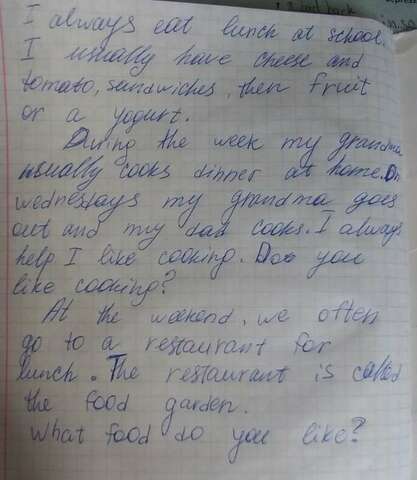 I always eat lunch at school.
I usually have cheese and
tomato, sandwiches, then fruit
or a yogurt.
During the week my grandma
usually cooks dinner at home. On
wednesdays my grandma goes
out and my dad cooks. I always
help I like cooking. Dos you
like cooking?
At the weekend, we often
go to a restaurant for
lunch. The restaurant is called
the food garden.
What food do you like?